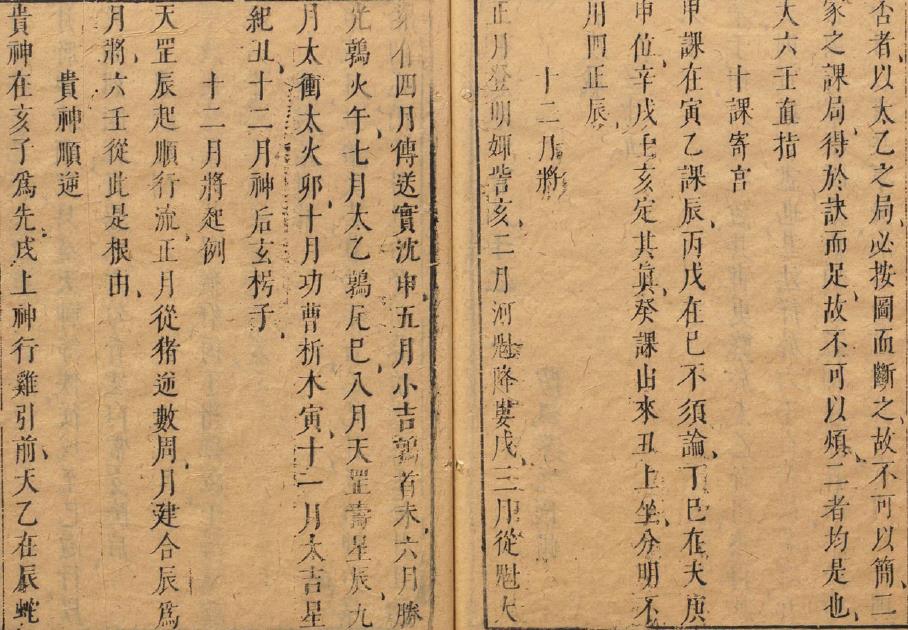 否者以太乙之局必按圖而斷之故不可以簡二
家之課局得於訣而足故不可以煩二者均是也
大六壬直指
十課寄宮
甲課在寅乙課辰丙戊在巳不須論丁巳在未庚
申位辛戌壬亥定其眞癸課由來丑上坐分明不
用四正辰
十二月將
正月登明娵訾亥二月河魁降婁戌三月從魁大
梁酉四月傳送實沈申五月小吉鶉首未六月勝
光鶉火午七月太乙鶉尾巳八月天罡壽星辰九
月太衝大火卯十月功曹析木寅十一月大吉星
紀丑十二月神后玄枵子
十二月將起例
天罡辰起順行流正月從猪逆數周月建合辰爲
月將六壬從此是根由
貴神順逆
貴神在亥子爲先戌上神行雞引前天乙在辰蛇